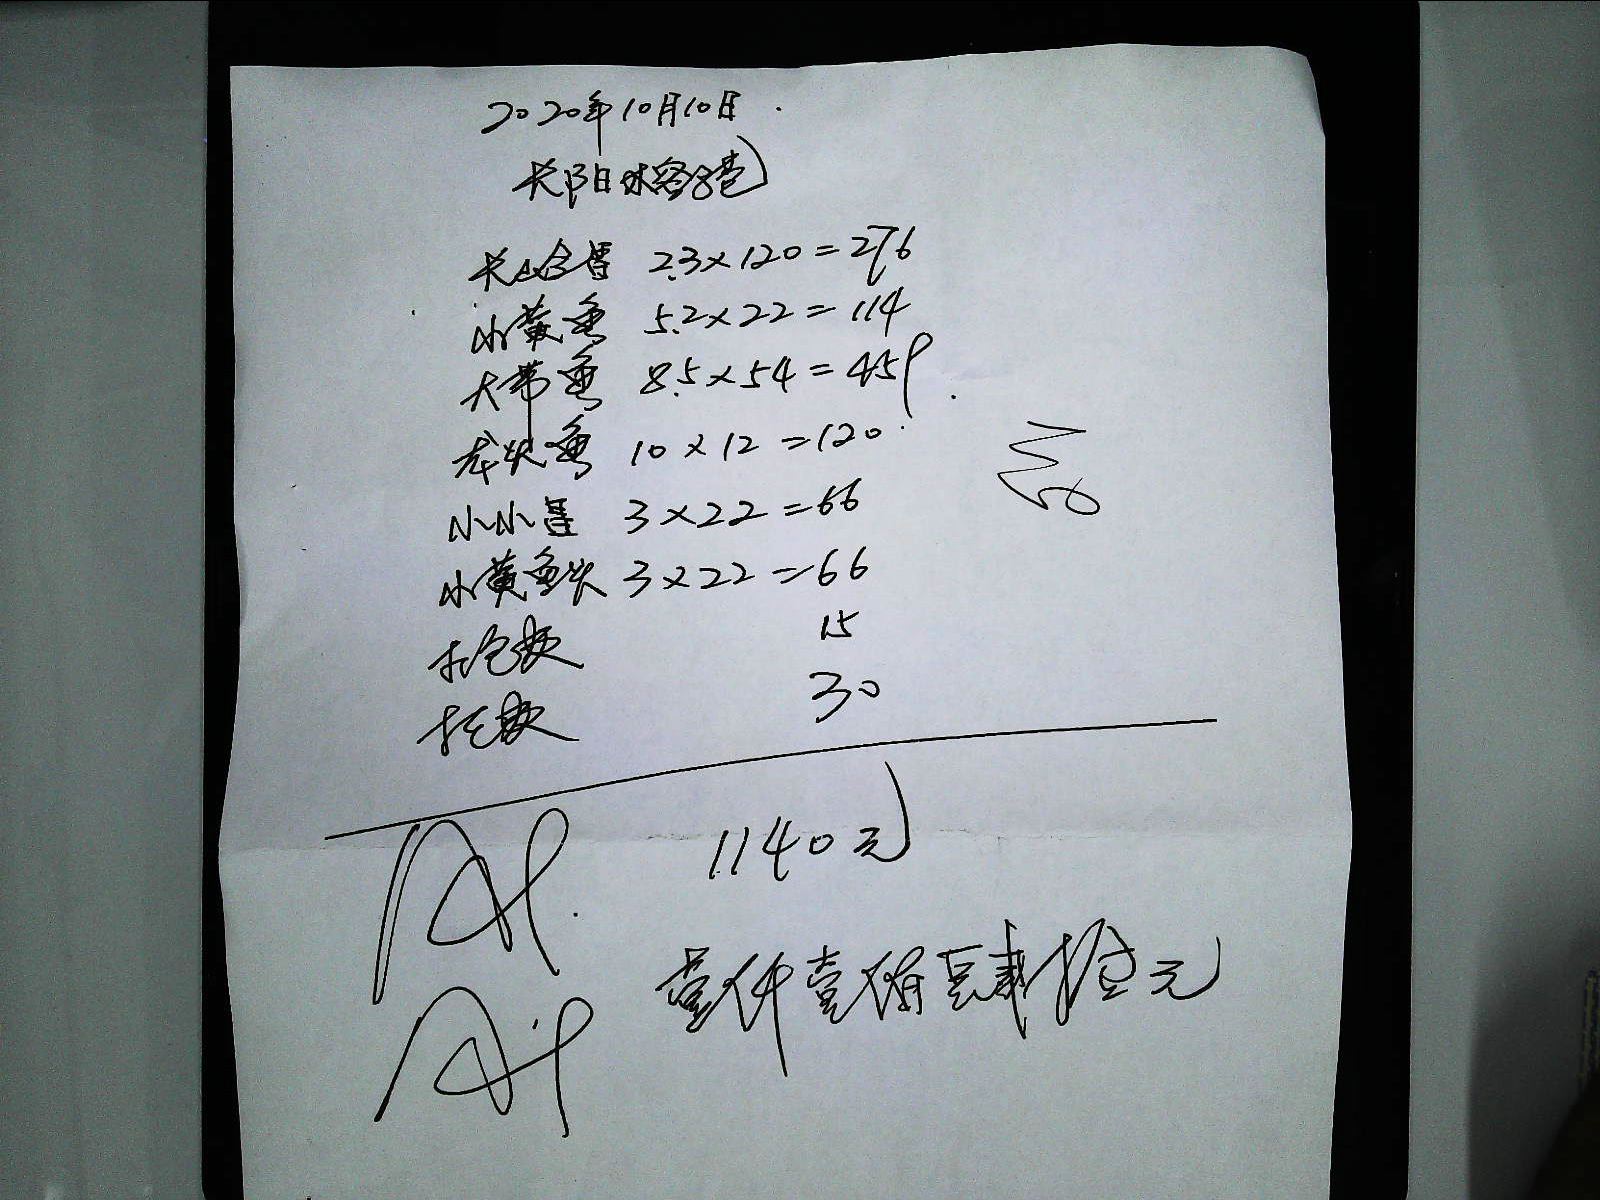 2020年10月10日
长阳
2.3×120=276
小黄鱼 5.2×22=114
大带鱼 8.5×54=459
龙头鱼 10×12=120
小小 3×22=66
小黄鱼头 3×22=66
打包费 15
30
1140元
壹仟壹佰肆拾元